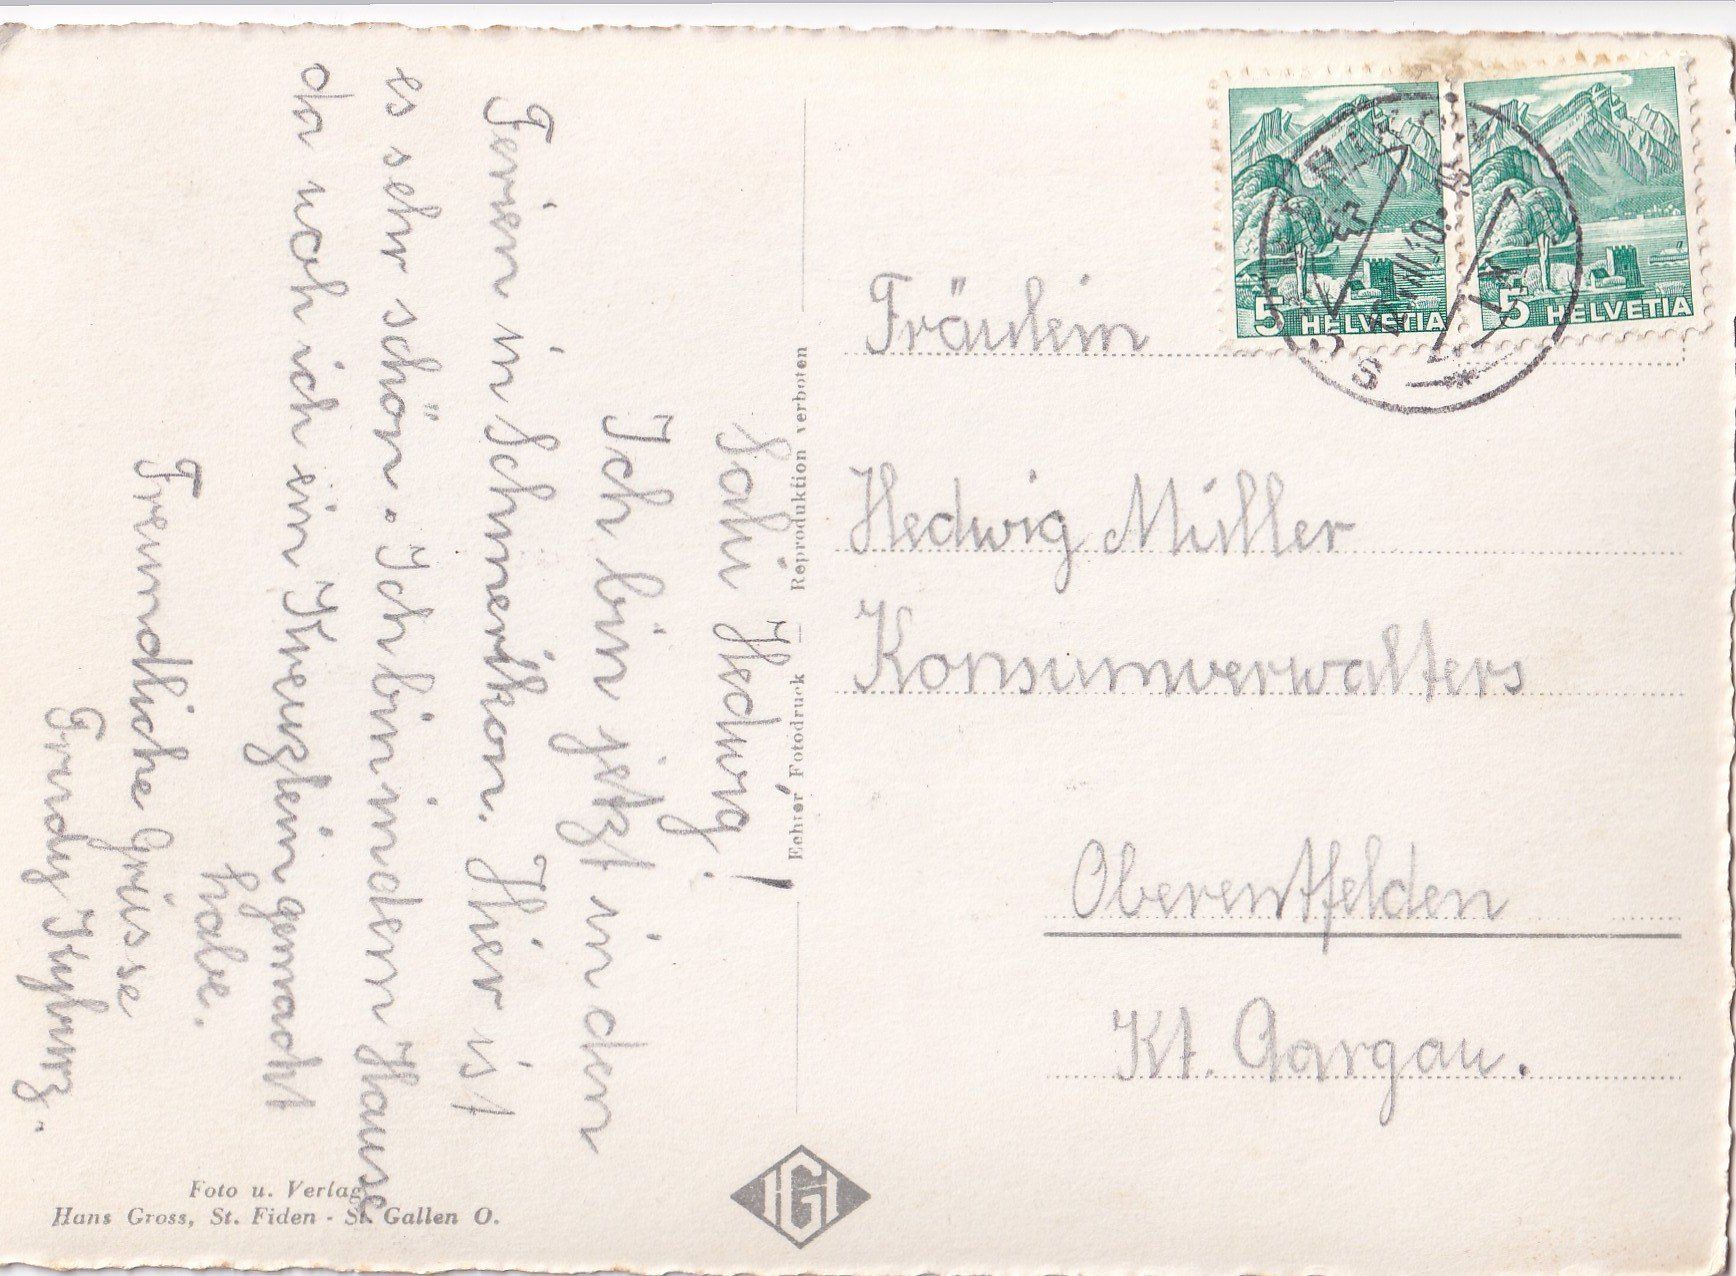 Salü Hedwig!
Ich bin jetzt in den
Ferien in Schmerikon. Hier ist
es sehr schön. Ich bin in dem Hause
da woh ich ein Kreuzlein gemacht
habe.
Freundliche Grüsse
Trudy Kyburz.
Echter Fotodruck — Reproduktion verboten
Fräulein
Hedwig Müller
Konsumverwalters
Oberentfelden
Kt. Aargau.
5 HELVETIA
5 HELVETIA
HG
Foto u. Verlag
Hans Gross, St. Fiden - St. Gallen O.